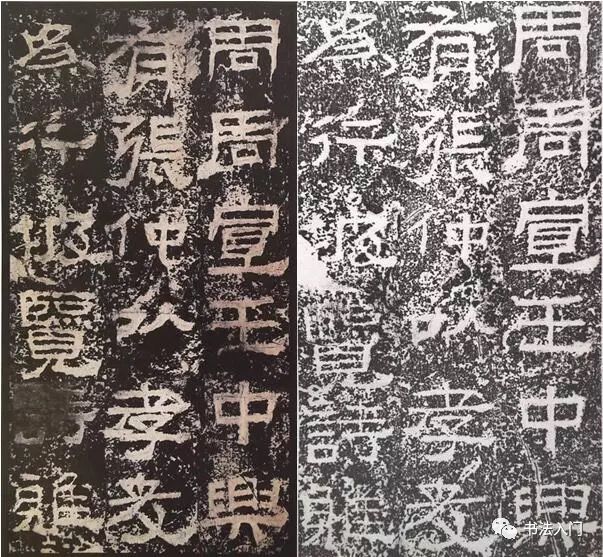 周周宣王中興
有張仲以孝友
為行披覽詩雅
周周宣王中興
有張仲以孝友
為行披覽詩雅
书法入门